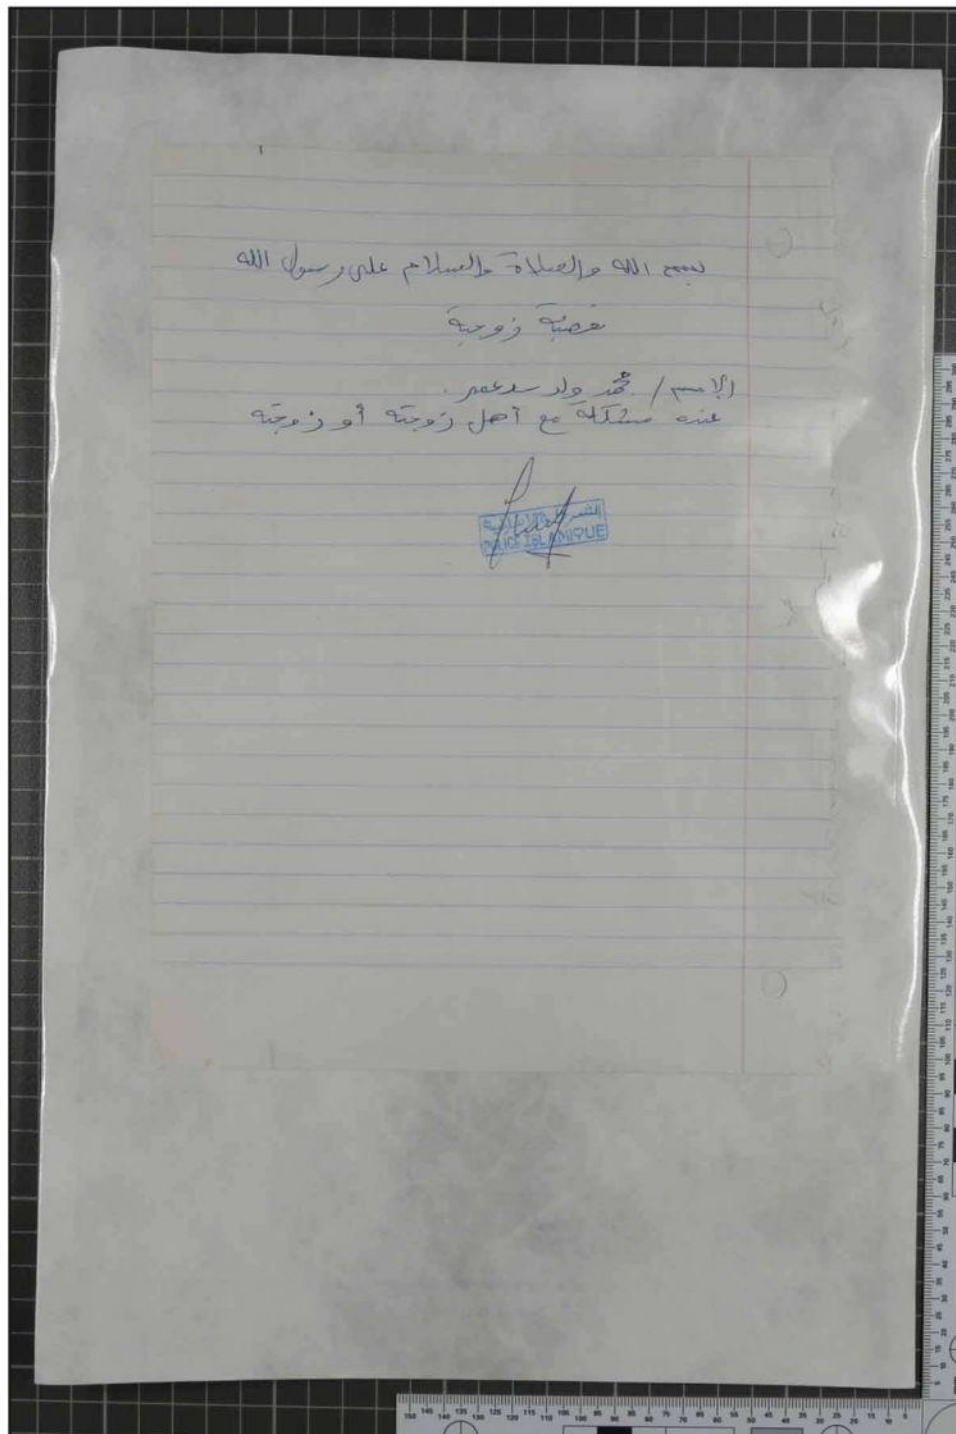 بسم الله والصلاة والسلام على رسول الله
قضية زوجية
الاسم / محمد ولد سيدعمر.
عنده مشكلة مع أهل زوجته أو زوجته
الشرطة الإسلامية
POLICE ISLAMIQUE